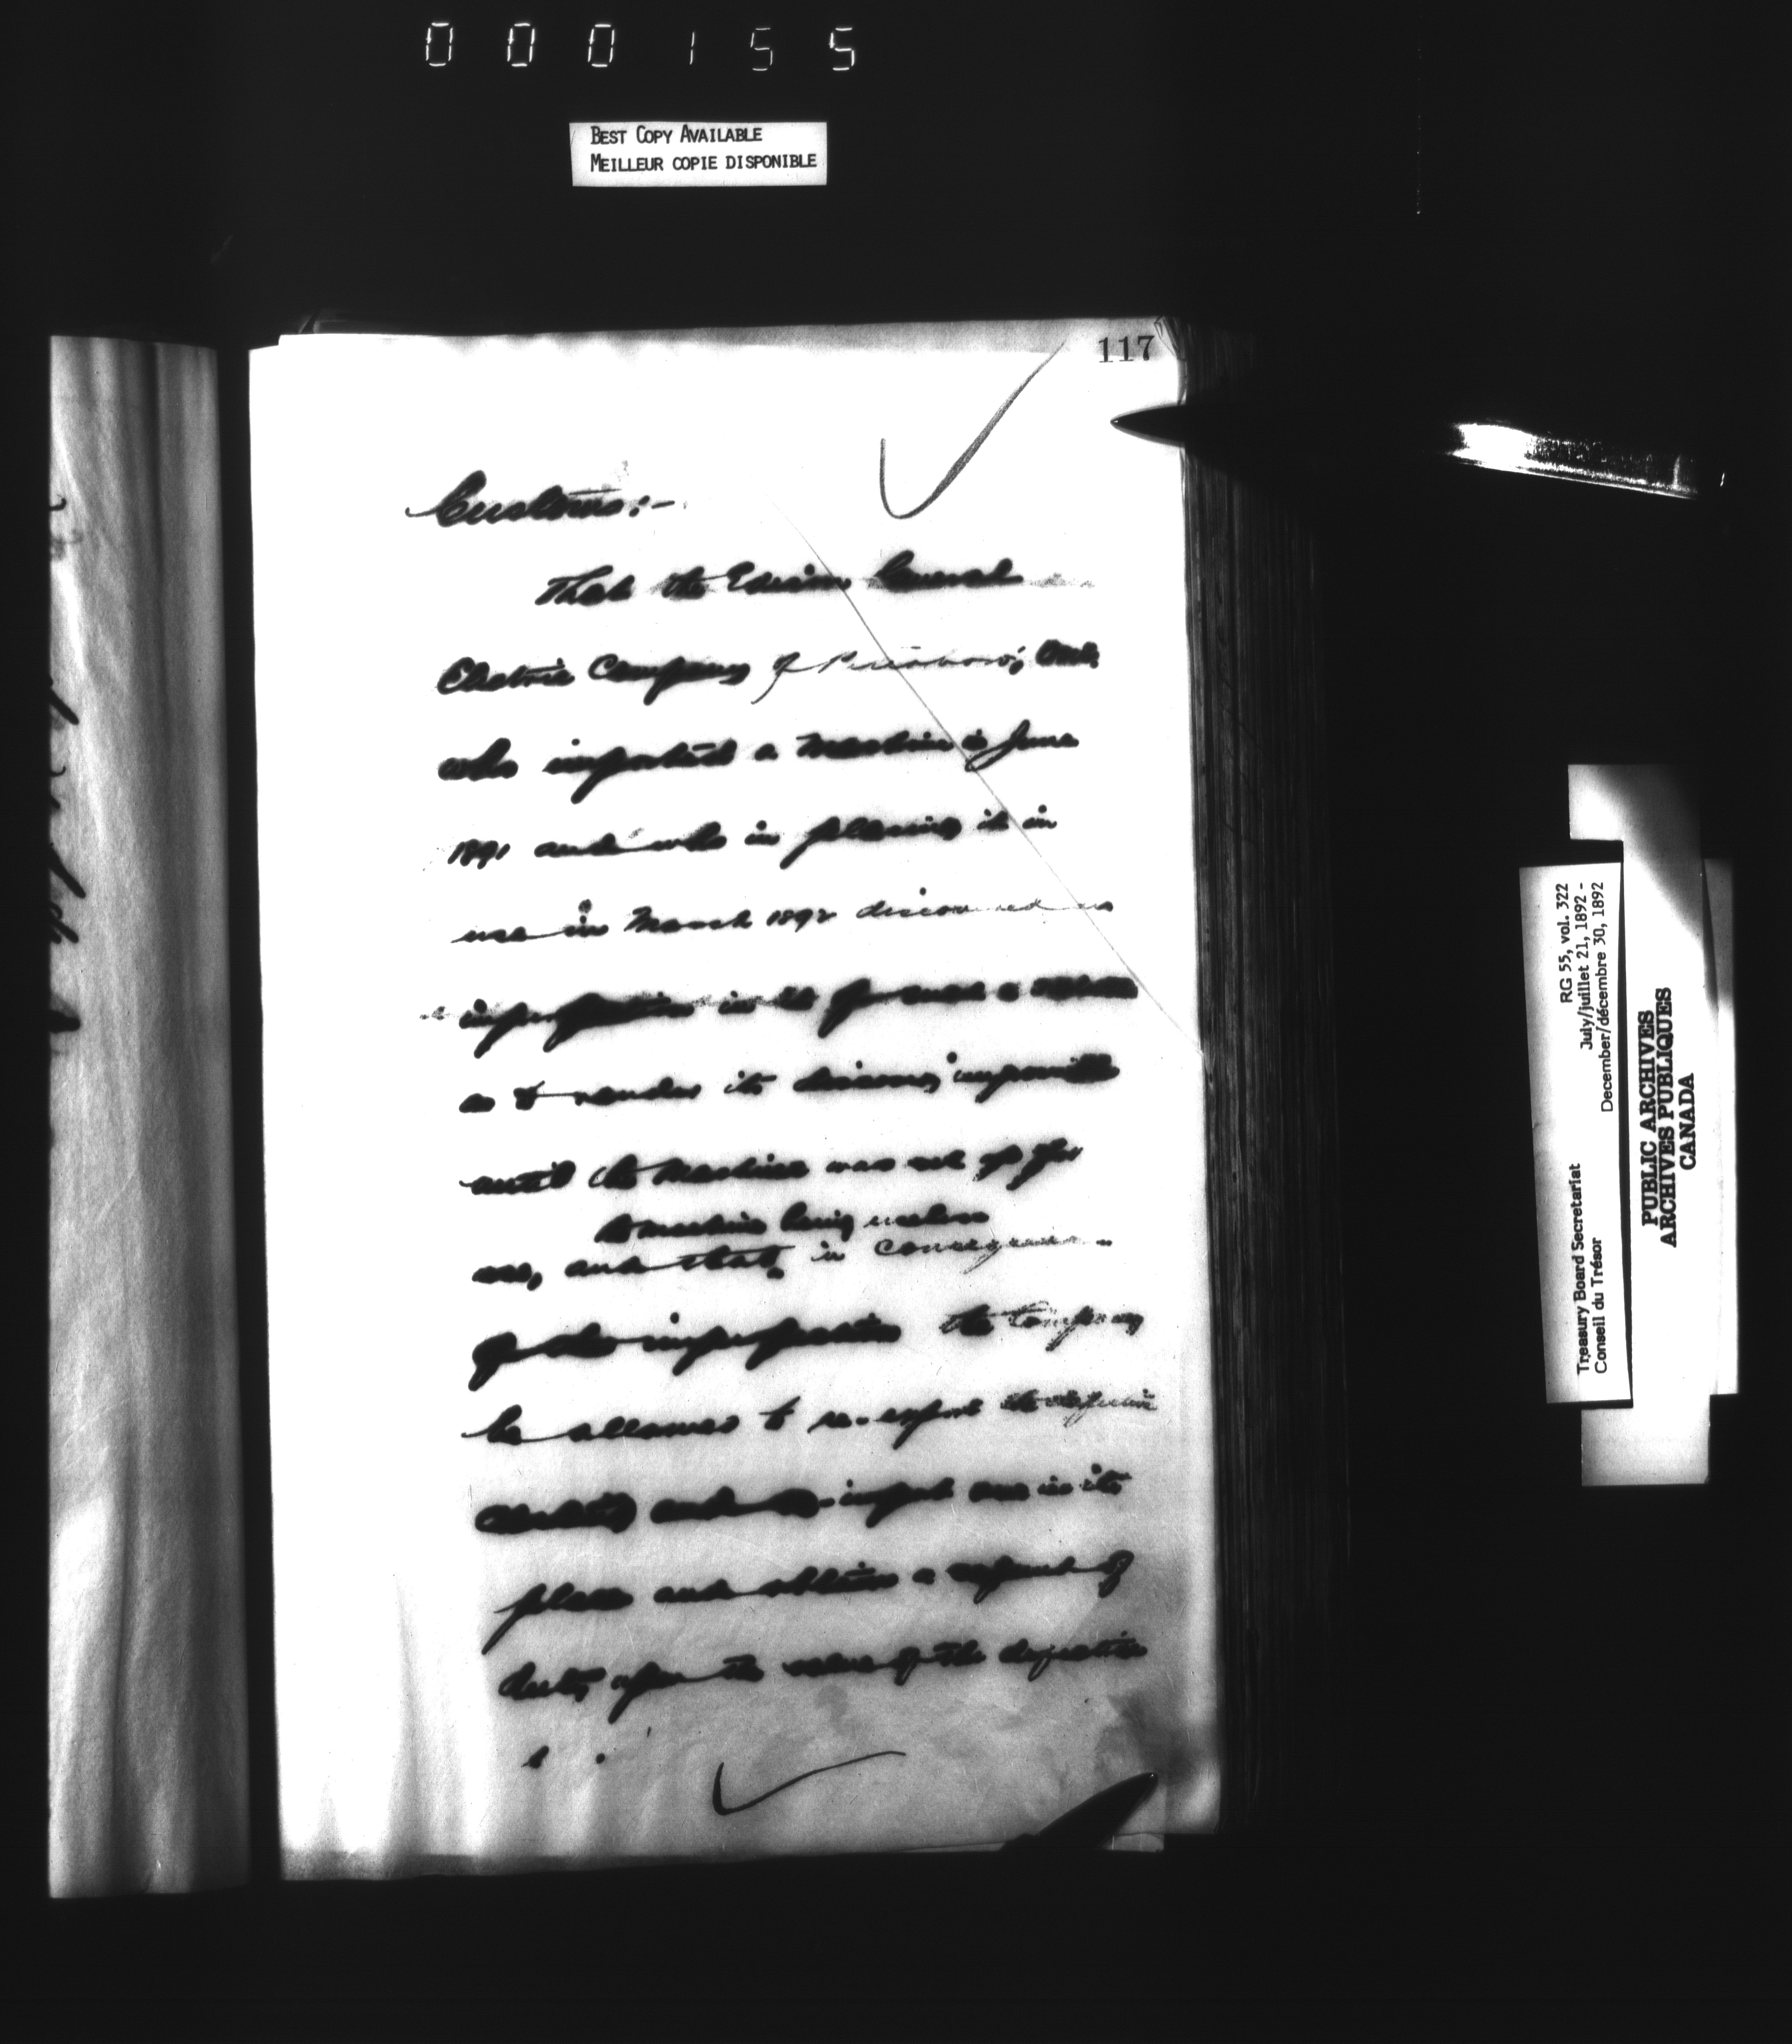 000155
BEST COPY AVAILABLE
MEILLEUR COPIE DISPONIBLE
117
Customs:-
That the Edison General
Electric Company of Ont.
who imported a machine in June
1891 and who in placing it in
use in March 1892 discovered
imperfection in it of such a nature
as to render its discovery impossible
until the machine was set up for
machine being useless
use, and that, in consequence
of the imperfection the Company
be allowed to re-export the defective
and re-import one in its
place and obtain a refund of
duty upon the value of the defective
RG 55, vol. 322
July/juillet 21, 1892 -
December/décembre 30, 1892
Treasury Board Secretariat
Conseil du Trésor
PUBLIC ARCHIVES
ARCHIVES PUBLIQUES
CANADA